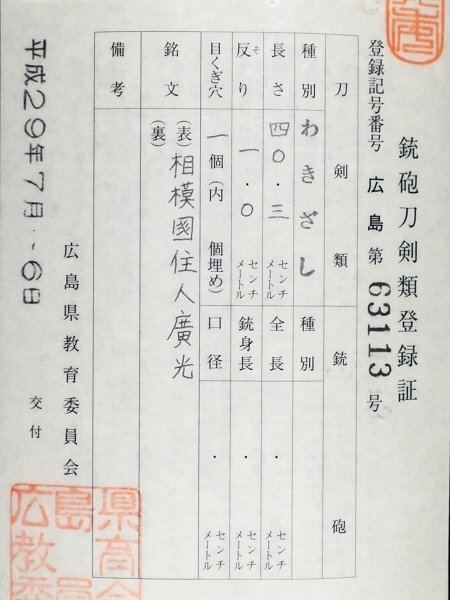 銃砲刀剣類登録証
登録記号番号 広島 第 63113 号
刀剣類 銃砲
種別 わきざし 種別
長さ 四〇・三 センチメートル 全長 ・ センチメートル
反り そ 一・〇 センチメートル 銃身長 ・ センチメートル
目くぎ穴 一個(内 個埋め) 口径 ・ センチメートル
銘文 (表) 相模國住人廣光
(裏)
備考
広島県教育委員会 交付
平成29年7月-6日
広島県教育委員会